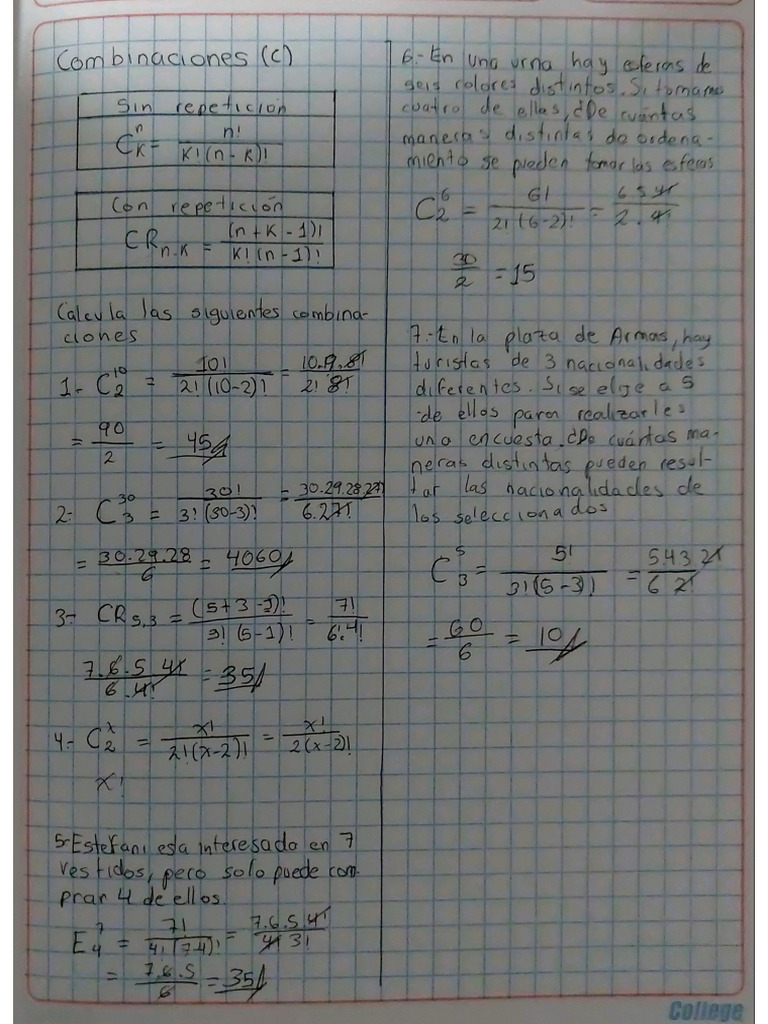 Combinaciones (C)
Sin repetición
C^n_K = n! / K!(n-K)!
Con repetición
CR n.K = (n+K-1)! / K!(n-1)!
Calcula las siguientes combina-
ciones
1- C^10_2 = 10! / 2!(10-2)! = 10.9.8! / 2! 8!
= 90/2 = 45
2- C^30_3 = 30! / 3!(30-3)! = 30.29.28.27! / 6.27!
= 30.29.28 / 6 = 4060
3- CR 5,3 = (5+3-1)! / 3!(5-1)! = 7! / 6!4!
7.6.5 4! / 6.4! = 35
4- C^x_2 = x! / 2!(x-2)! = x! / 2(x-2)!
x!
5-Estefani esta interesado en 7
vestidos, pero solo puede com-
prar 4 de ellos.
E^7_4 = 7! / 4!(7-4)! = 7.6.5 4! / 4! 3!
= 7.6.5 / 6 = 35
6.-En una urna hay esferas de
seis colores distintos. Si tomamo
cuatro de ellas, ¿De cuántas
maneras distintas de ordena-
miento se pueden tomar las esferas
C^6_2 = 6! / 2!(6-2)! = 6 5 4! / 2.4!
30/2 = 15
7.-En la plaza de Armas, hay
turistas de 3 nacionalidades
diferentes. Si se elije a 5
de ellos para realizarles
una encuesta. ¿De cuántas ma-
neras distintas pueden resul-
tar las nacionalidades de
los seleccionados
C^5_3 = 5! / 3!(5-3)! = 5.4.3 2! / 6 2!
= 60/6 = 10
College